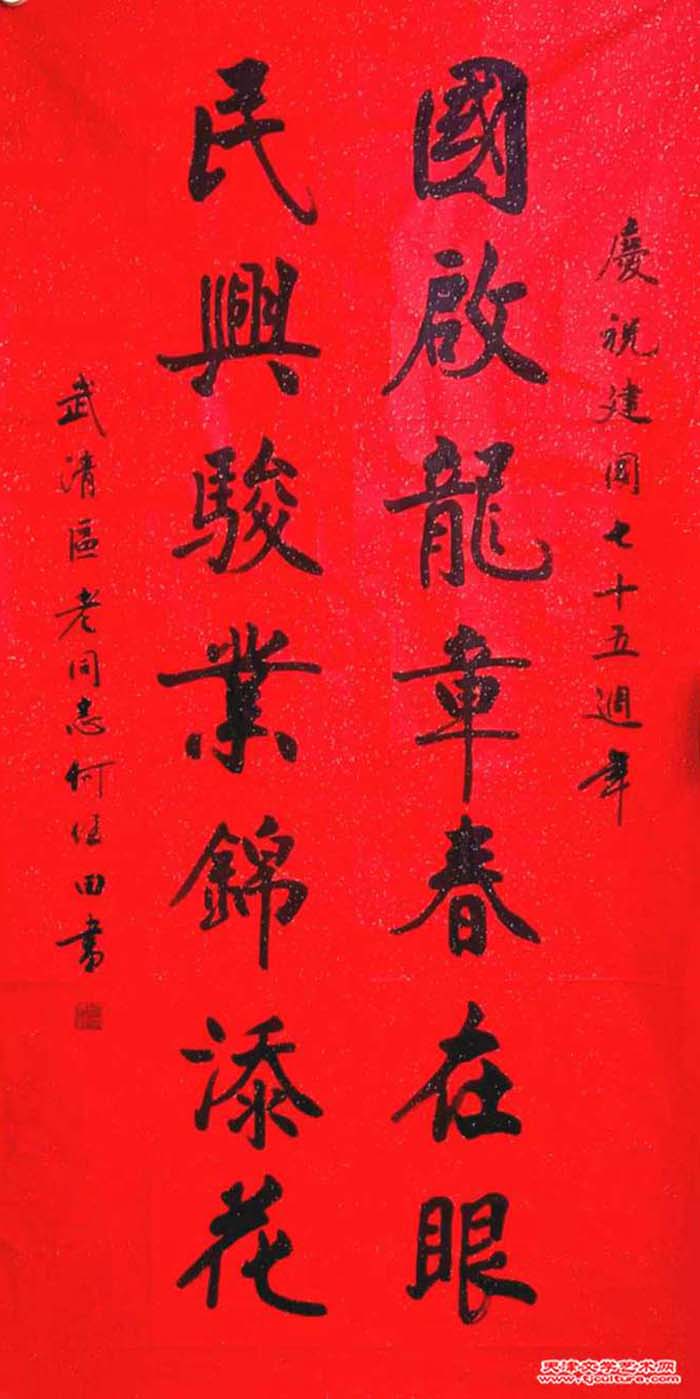 慶祝建國七十五週年
國啟龍章春在眼
民興駿業錦添花
武清區老同志何任田書
天津文学艺术网
www.tjcultura.com